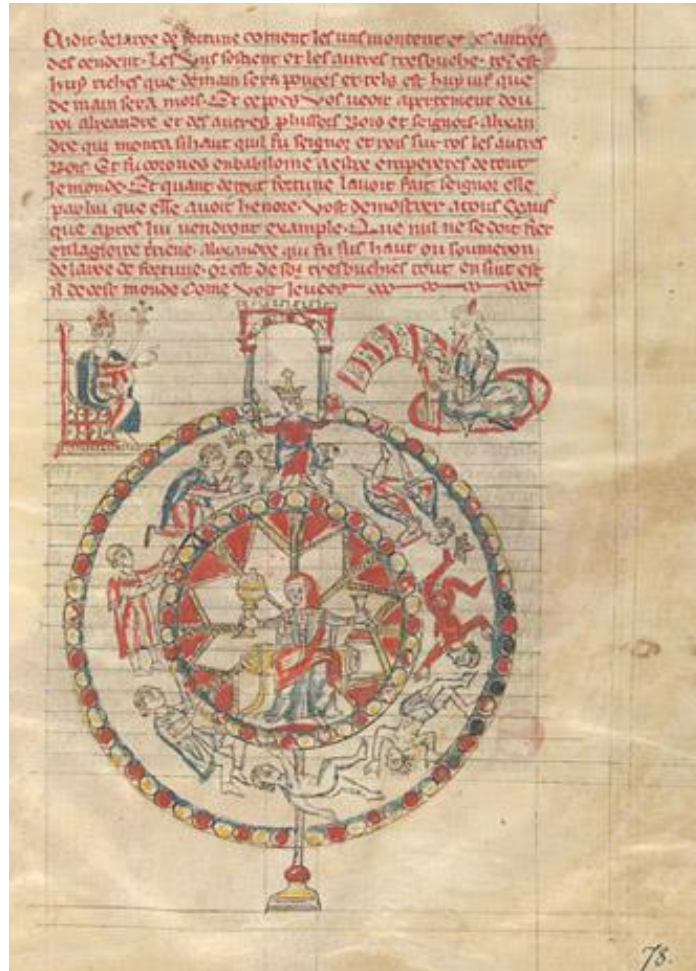 Ci dit de la roe de fortune coment les uns montent et les autres
des cendent. Les uns sosleent et les autres tresbuche. tel est
huy riches que demain sera poures et tels est huy uis que
de main sera mors. Et ce poes vos ueoir apertement dou
roi alixandre et des autres plussors Rois et seignors. alixan
dre qui monta si haut quil fu seignor et rois sur tos les autres
Rois. Et fu corones en babiloine a estre empereres de tout
le monde. Et quant de tout fortune lauoit fait seignor elle
par lui que elle auoit henore. Vost demostrer a tous Ceaus
que apres lui uendront example. Que nul ne se doit fier
en la gloire teriene. alixandre qui fu sus haut ou someron
de la roe de fortune. or est de sos tresbuchies tout en sint est
il de cest monde Come Vos le uees
78.